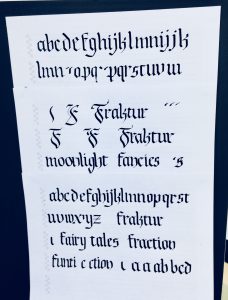 abcdefghijklmnijjk
lmn opq pqrstuvw
F Fraktur
F F Fraktur
moonlight fancies 's
abcdefghijklmnopqrst
uvwxyz fraktur
fairy tales fraction
ction a a a b bcd